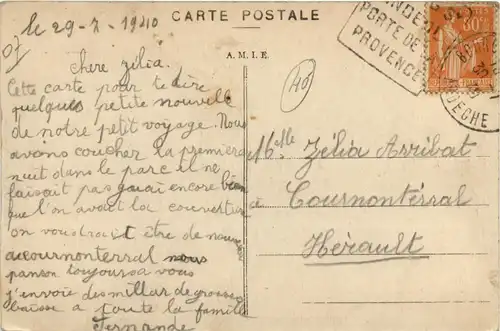 le 29-7-1940
CARTE POSTALE
A.M.I.E.
PORTE DE
PROVENCE
DECHE
80
40
chere Zélia.
Cette carte pour te dire
quelques petite nouvelle
de notre petit voyage. Nous
avons coucher la premiere
nuit dans le parc il ne
faisait pas guai encore bien
que l'on avait la couverture
on voudrait être de nouveau
a cournonterral nous
panson toujours a vous
j'envoie des millar de grosses
baisse a toute la famille
Fernande
Melle Zélia Arribat
a Cournontérral
Hérault